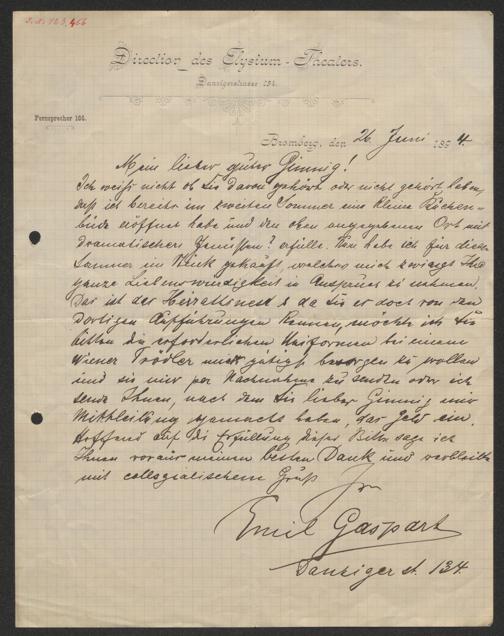 J. N. 123,466
Direction des Elysium-Theaters.
Danzigerstrasse 134.
Fernsprecher 104.
Bromberg, den 26 Juni 1894.
Mein lieber guter Ginnig!
Ich weiß nicht ob Sie davon gehört oder nicht gehört haben,
daß ich bereits im zweiten Sommer eine kleine Küchen-
bude eröffnet habe und den oben angegebenen Ort mit
dramatischen Genüssen? erfülle. Nun habe ich für diesen
Sommer ein Stück gekauft, welches mich zwingt Ihre
ganze Liebenswürdigkeit in Anspruch zu nehmen.
Das ist das Heirathsnest & da Sie es doch von den
dortigen Aufführungen kennen, möchte ich Sie
bitten die erforderlichen Uniformen bei einem
Wiener Trödler mir gütigst besorgen zu wollen
und sie mir per Nachnahme zu senden oder ich
sende Ihnen, nach dem Sie lieber Ginnig mir
Mittheilung gemacht haben, das Geld ein.
Hoffend auf die Erfüllung dieser Bitte sage ich
Ihnen voraus meinen besten Dank und verbleibe
mit collegialischem Gruß
Ihr
Emil Gaspart
Danzigerst. 134.